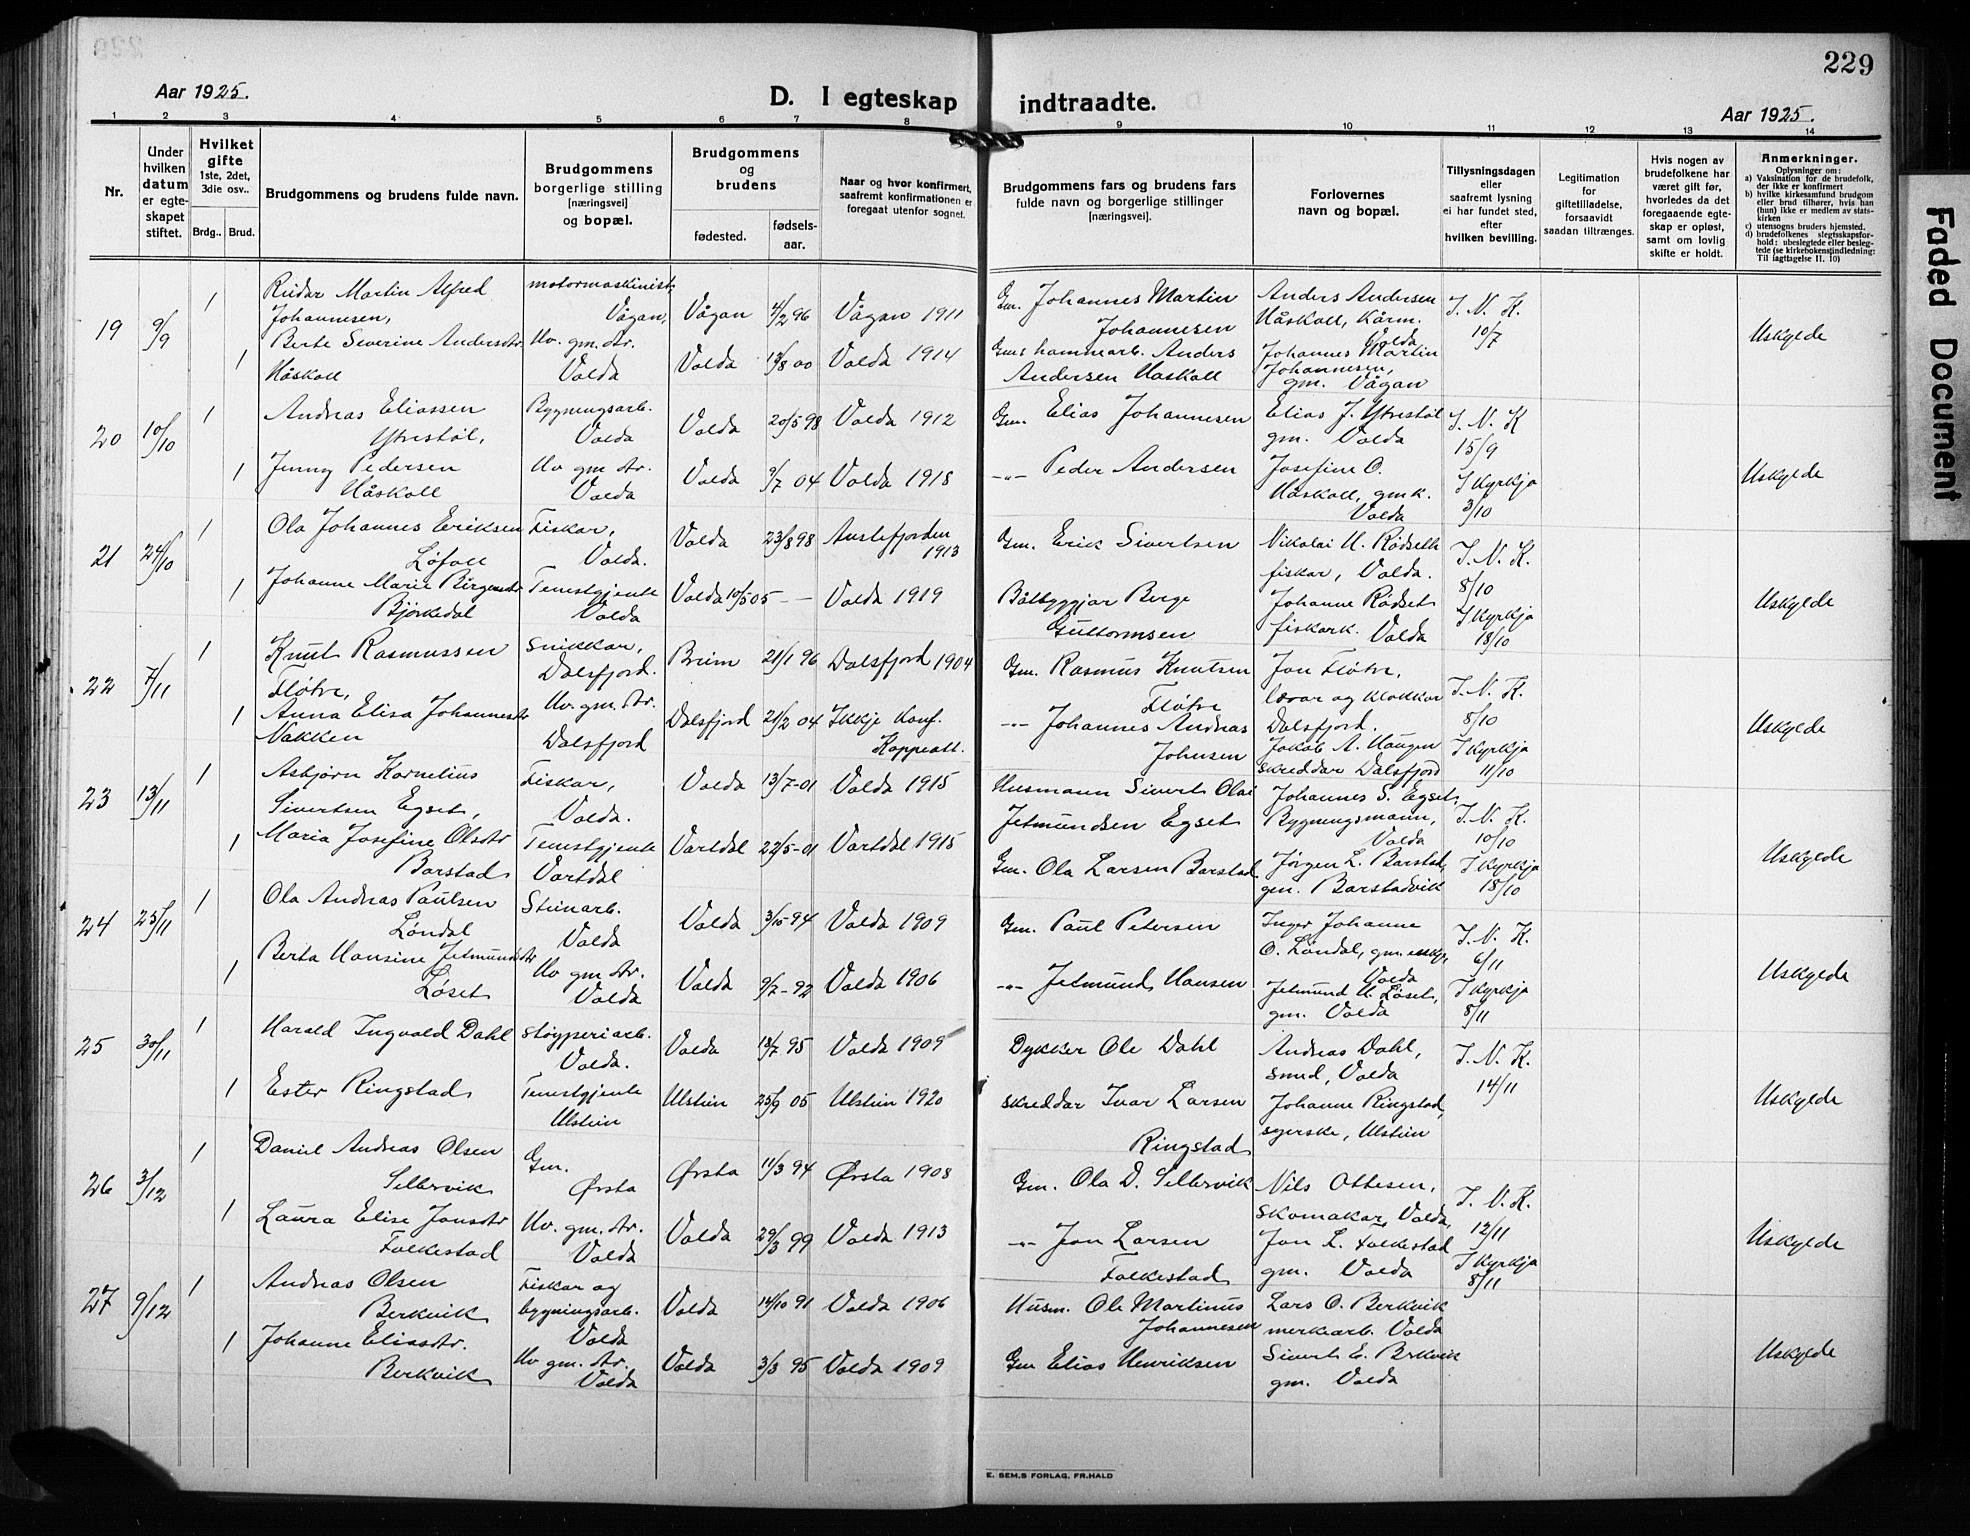 229
Aar 1925.
D. I egteskap indtraadte.
Aar 1925.
1 2 3 4 5 6 7 8 9 10 11 12 13 14
Nr.
Under hvilken datum er egte-skapet stiftet.
Hvilket gifte 1ste, 2det, 3die osv..
Brdg.. Brud.
Brudgommens og brudens fulde navn.
Brudgommens borgerlige stilling [næringsvei] og bopæl.
Brudgommens og brudens
fødested.
fødsels-aar.
Naar og hvor konfirmert, saafremt konfirmationen er foregaat utenfor sognet.
Brudgommens fars og brudens fars fulde navn og borgerlige stillinger [næringsvei].
Forlovernes navn og bopæl.
Tillysningsdagen eller saafremt lysning ei har fundet sted, efter hvilken bevilling.
Legitimation for giftetilladelse, forsaavidt saadan tiltrænges.
Hvis nogen av brudefolkene har været gift før, hvorledes da det foregaaende egte-skap er opløst, samt om lovlig skifte er holdt.
Anmerkninger.
Oplysninger om:
a) Vaksination for de brudefolk, der ikke er konfirmert
b) hvilke kirkesamfund brudgom eller brud tilhører, hvis han (hun) ikke er medlem av stats-kirken
c) utensogns bruders hjemsted.
d) brudefolkenes slegtsskapsfor-hold: ubeslegtede eller besleg-tede (se kirkebokens indledning: Til iagttagelse II. 10)
19 9/9 1 Reidar Martin Alfred Johannesen, motormaskinist, Vågan, Vågan 4/2 96 Vågan 1911 Gm. Johannes Martin Johannesen Anders Andersen Håskoll, Kårm. Volda I. N. K. 10/7
1 Berte Severine Andersdtr. Håskoll Hv. gm. dtr. Volda Volda 13/8 00 Volda 1914 Gm. hammarb. Anders Andersen Håskoll Johannes Martin Johannesen, gm. Vågan Uskylde
20 10/10 1 Andreas Eliassen Ytrestøl, Bygningsarb. Volda Volda 20/5 98 Volda 1912 Gm. Elias Johannesen Elias J. Ytrestøl gm. Volda I. N. K 15/9
1 Jenny Pedersen Håskoll Hv gm dtr. Volda Volda 9/7 04 Volda 1918 -"- Peder Andersen Josefine O. Håskoll, gmk. Volda I Kyrkja 3/10 Uskylde
21 24/10 1 Ola Johannes Eriksen Løfoll Fiskar, Volda. Volda 23/8 98 Austefjorden 1913 Gm. Erik Sivertsen Nikolai H. Rødseth fiskar, Volda. I. N. K. 8/10
1 Johanne Marie Børgesdtr Bjørkedal Tenestgjente Volda Volda 10/5 05 — Volda 1919 Båtbyggjar Berge Guttormsen Johanne Rødset fiskark. Volda I Kyrkja 18/10 Uskylde
22 7/11 1 Knut Rasmussen Fløtre, Snikkar, Dalsfjord. Breim 21/1 96 Dalsfjord 1904 Gm. Rasmus Knutsen Fløtre Jon Fløtre, lærar og klokkar Dalsfjord. I. N. K. 8/10
1 Anna Elisa Johannesdtr Nakken Hv. gm. dtr. Dalsfjord Dalsfjord 21/2 04 Ikkje konf. Koppeatt. -"- Johannes Andreas Johnsen Jakob A. Haugen skreddar Dalsfjord I Kyrkja 11/10 Uskylde
23 13/11 1 Asbjørn Kornelius Sivertsen Egset, Fiskar, Volda. Volda 13/7-01 Volda 1915 Husmann Sivert Olai Jetmundsen Egset Johannes S. Egset, Bygningsmann, Volda I. N. K. 10/10
1 Maria Josefine Olsdtr Barstad Tenestgjente Vartdal Vartdal 22/5-01 Vartdal 1915 Gm. Ola Larsen Barstad Jørgen L. Barstad, gm. Barstadvik I Kyrkja 18/10 Uskylde
24 25/11 1 Ola Andreas Paulsen Løndal Steinarb. Volda Volda 3/10-94 Volda 1909 Gm. Paul Petersen Inger Johanne O. Løndal, gm. Volda I. N. K. 6/11
1 Berta Hansine Jetmundsdtr Løset Hv gm dtr. Volda Volda 9/7-92 Volda 1906 -"- Jetmund Hansen Jetmund H. Løset, gm. Volda I Kyrkja 8/11 Uskylde
25 30/11 1 Harald Ingvald Dahl støyperiarb. Volda. Volda 13/7 95 Volda 1909 Dykker Ole Dahl Andreas Dahl, smed, Volda I. N. K. 14/11
1 Ester Ringstad Tenestgjente Ulstein Ulstein 25/9 05 Ulstein 1920 skreddar Ivar Larsen Ringstad Johanne Ringstad, syerske, Ulstein Uskylde
26 3/12 1 Daniel Andreas Olsen Sellervik Gm. Ørsta Ørsta 11/3 94 Ørsta 1908 Gm. Ola D. Sellervik Nils Ottesen, skomakar, Volda, I. N. K. 12/11
1 Laura Elise Jonsdtr Folkestad Hv. gm. dtr. Volda Volda 29/3 99 Volda 1913 -"- Jon Larsen Folkestad Jon L. Folkestad gm. Volda I Kyrkja 8/11 Uskylde
27 9/12 1 Andreas Olsen Berkvik Fiskar og bygningsarb. Volda Volda 14/10 91 Volda 1906 Husm. Ole Martinus Johannesen Lars O. Berkvik merkearb. Volda
1 Johanne Eliasdtr. Berkvik Hv gm. dtr. Volda Volda 3/3 95 Volda 1909 Gm Elias Henriksen Sivert E. Brkvik gm. Volda Uskylde
E. SEM.S FORLAG, FR.HALD
Faded Document